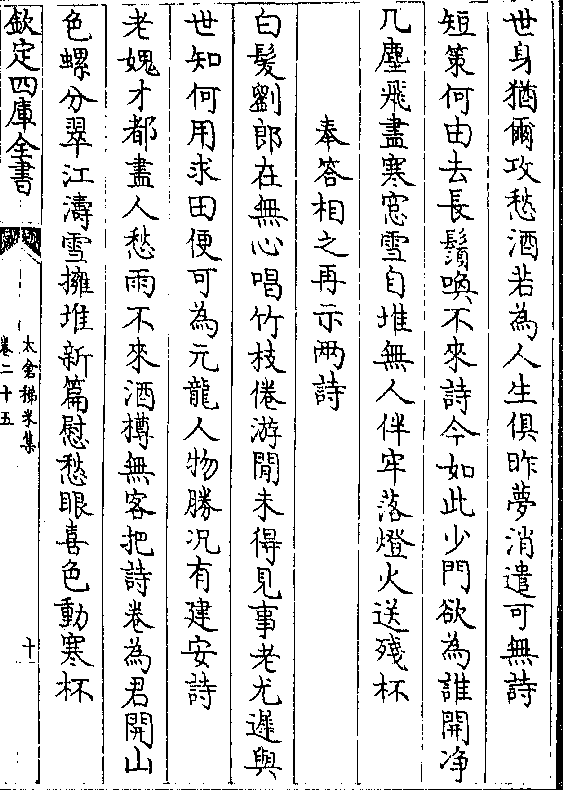 世身猶爾攻愁酒若為人生俱昨夢消遣可無詩
短策何由去長鬚喚不來詩今如此少門欲為誰開净
几塵飛盡寒窓雪自堆無人伴牢落燈火送殘杯
奉答相之再示两詩
白髮劉郎在無心唱竹枝倦游閒未得見事老尤遲與
世知何用求田便可為元龍人物勝况有建安詩
老媿才都盡人愁雨不來酒樽無客把詩卷為君開山
色螺分翠江濤雪擁堆新篇慰愁眼喜色動寒杯
欽定四庫全書
太倉稊米集
卷二十五
十